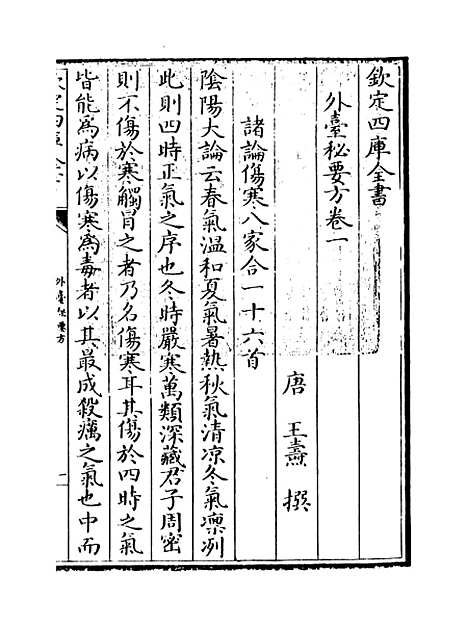 欽定四庫全書
外臺秘要方卷一
唐 王燾 撰
諸論傷寒八家合一十六首
陰陽大論云春氣溫和夏氣暑熱秋氣清凉冬氣凜冽
此則四時正氣之序也冬時嚴寒萬類深藏君子周密
則不傷於寒觸冒之者乃名傷寒耳其傷於四時之氣
皆能為病以傷寒為毒者以其最成殺癘之氣也中而
外臺秘要方